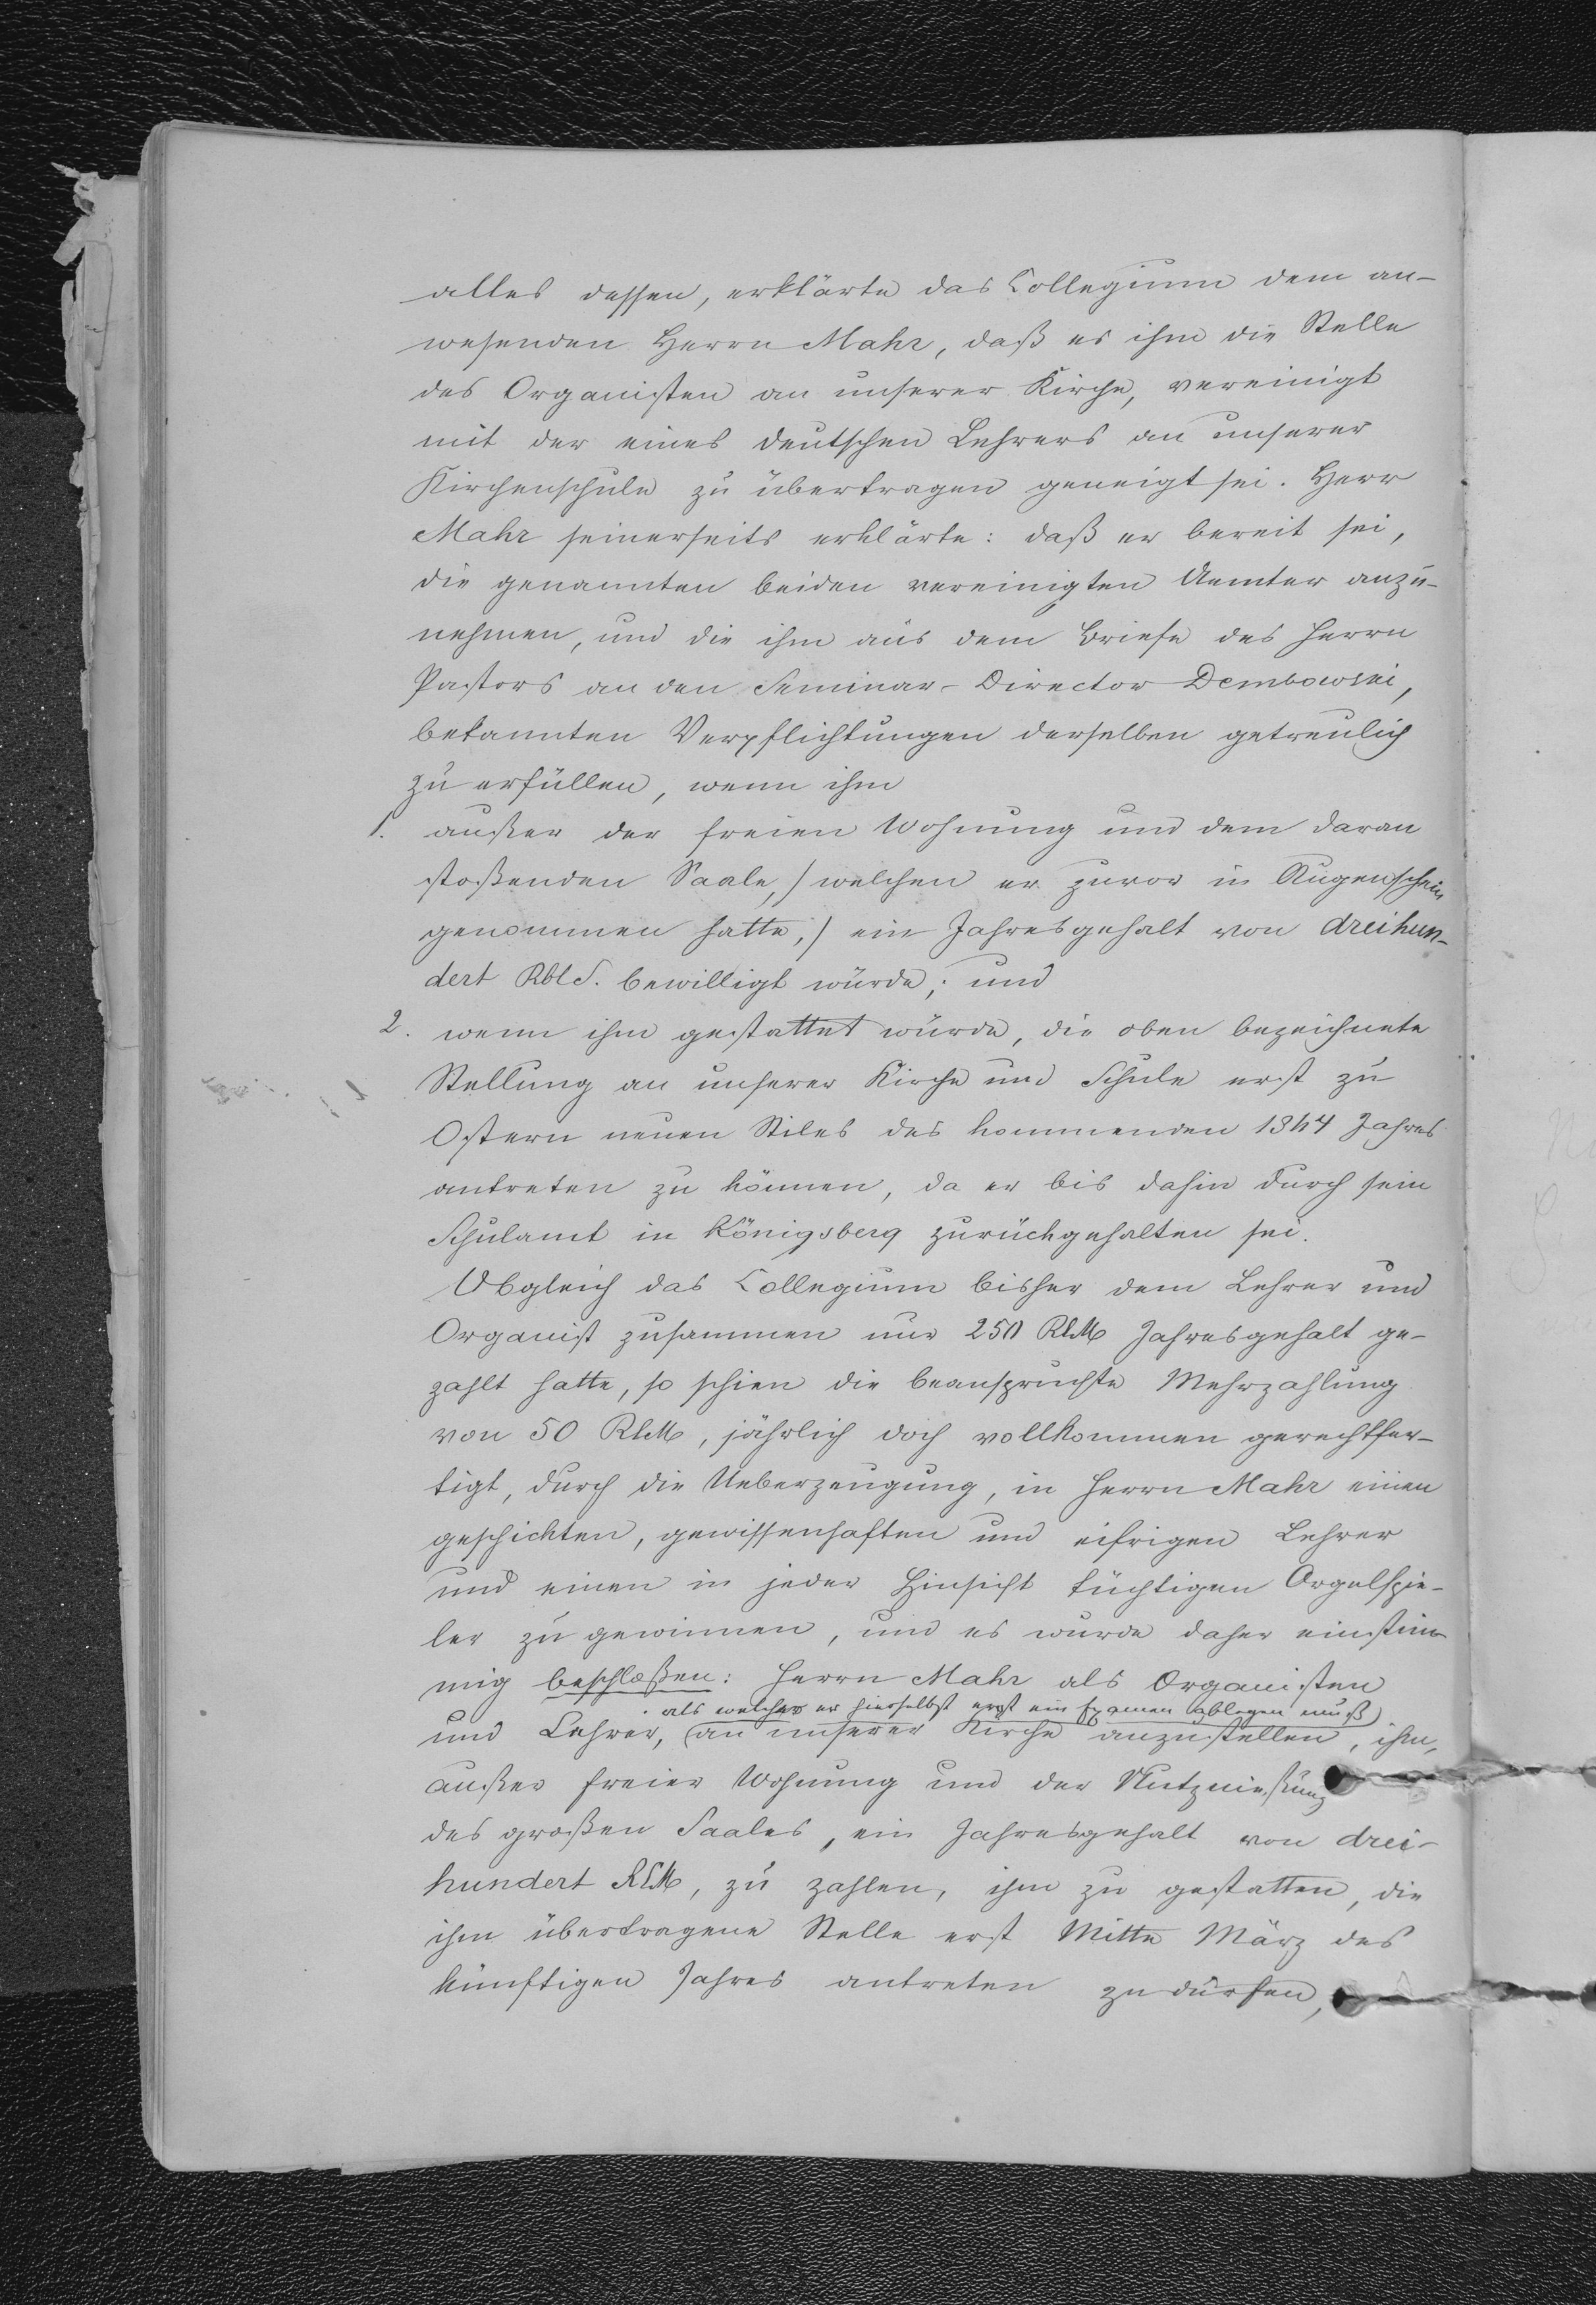 alles dessen, erklärte das Collegium dem an-
wesenden Herrn Mahr, daß es ihm die Stelle
des Organisten an unserer Kirche, vereinigt
mit der eines deutschen Lehrers an unserer
Kirchenschule zu übertragen geneigt sei. Herr
Mahr seinerseits erklärte: daß er bereit sei,
die genannten beiden vereinigten Aemter anzu-
nehmen, und die ihm aus dem Briefe des Herrn
Pastors an den Seminar-Director Dembowski,
bekannten Verpflichtungen derselben getreulich
zu erfüllen, wenn ihm
1. außer der freien Wohnung und dem daran
stoßenden Saale,) welchen er zuvor in Augenschein
genommen hatte,) ein Jahresgehalt von dreihun-
dert Rbl S. bewilligt würde; und
2. wenn ihm gestattet würde, die oben bezeichnete
Stellung an unserer Kirche und Schule erst zu
Ostern neuen Stiles des kommenden 1844 Jahres
antreten zu können, da er bis dahin durch sein
Schulamt in Königsberg zurückgehalten sei.
Obgleich das Collegium bisher dem Lehrer und
Organist zusammen nur 250 RbM Jahresgehalt ge-
zahlt hatte, so schien die beanspruchte Mehrzahlung
von 50 RbM, jährlich doch vollkommen gerechtfer-
tigt, durch die Ueberzeugung, in Herrn Mahr einen
geschickten, gewissenhaften und eifrigen Lehrer
und einen in jeder Hinsicht tüchtigen Orgelspie-
ler zu gewinnen, und es wurde daher einstim-
mig beschloßen: Herrn Mahr als Organisten
als welcher er hierselbst erst ein Examen ablegen muß)
und Lehrer, (an unserer Kirche anzustellen, ihm,
außer freier Wohnung und der Nutznießung
des großen Saales, ein Jahresgehalt von drei-
hundert RSM, zu zahlen, ihm zu gestatten, die
ihm übertragene Stelle erst Mitte März des
künftigen Jahres antreten zu dürfen,